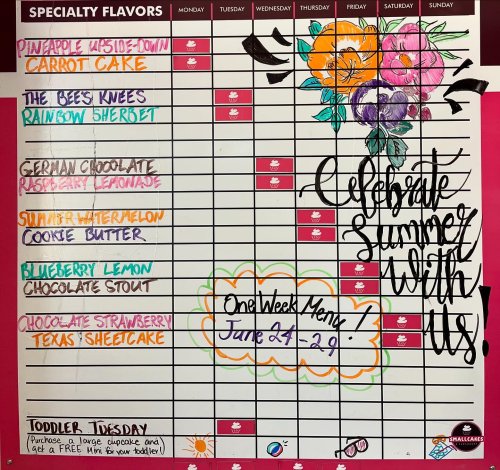 SPECIALTY FLAVORS MONDAY TUESDAY WEDNESDAY THURSDAY FRIDAY SATURDAY SUNDAY
PINEAPPLE UPSIDE-DOWN
CARROT CAKE
THE BEE'S KNEES
RAINBOW SHERBET
GERMAN CHOCOLATE
RASPBERRY LEMONADE
SUMMER WATERMELON
COOKIE BUTTER
BLUEBERRY LEMON
CHOCOLATE STOUT
CHOCOLATE STRAWBERRY
TEXAS SHEETCAKE
Celebrate
Summer
With
Us!
One Week Menu!
June 24-29
TODDLER TUESDAY
(Purchase a large cupcake and
get a FREE Mini for your toddler!)
SMALLCAKES